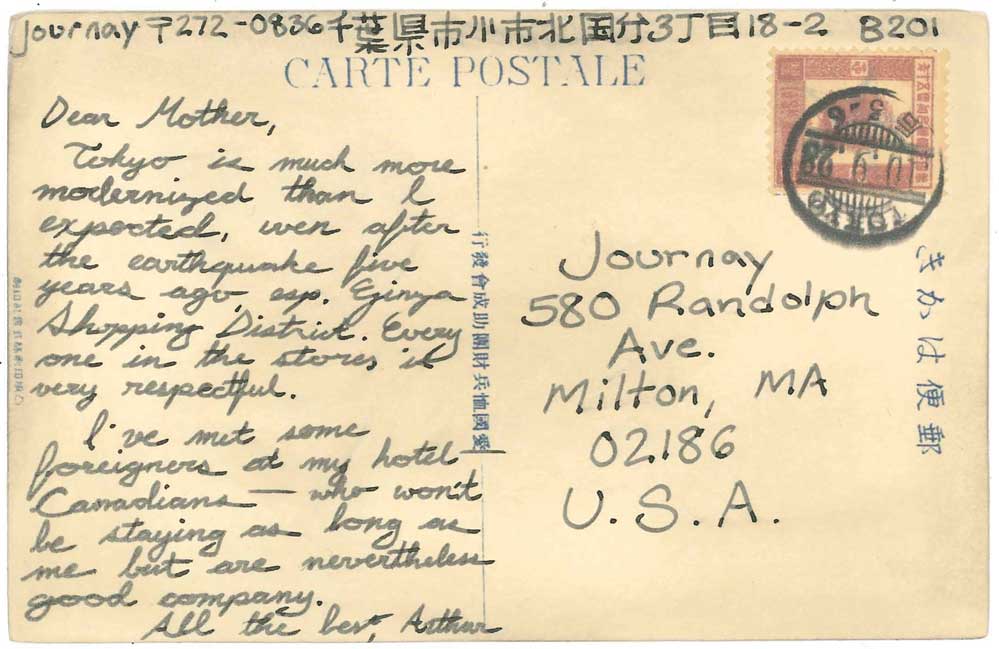 Journay 〒272-0836千葉県市川市北国分3丁目18-2 B201
CARTE POSTALE
Dear Mother,
Tokyo is much more
modernized than I
expected, even after
the earthquake five
years ago, esp. Ginza
Shopping District. Every
one in the stores is
very respectful.
I've met some
foreigners at my hotel
Canadians — who won't
be staying as long as
me but are nevertheless
good company.
All the best, Arthur
行發會成助團財兵恤國愛
Journay
580 Randolph
Ave.
Milton, MA
02186
U.S.A.
きかは便郵
TOKYO
10.9.28